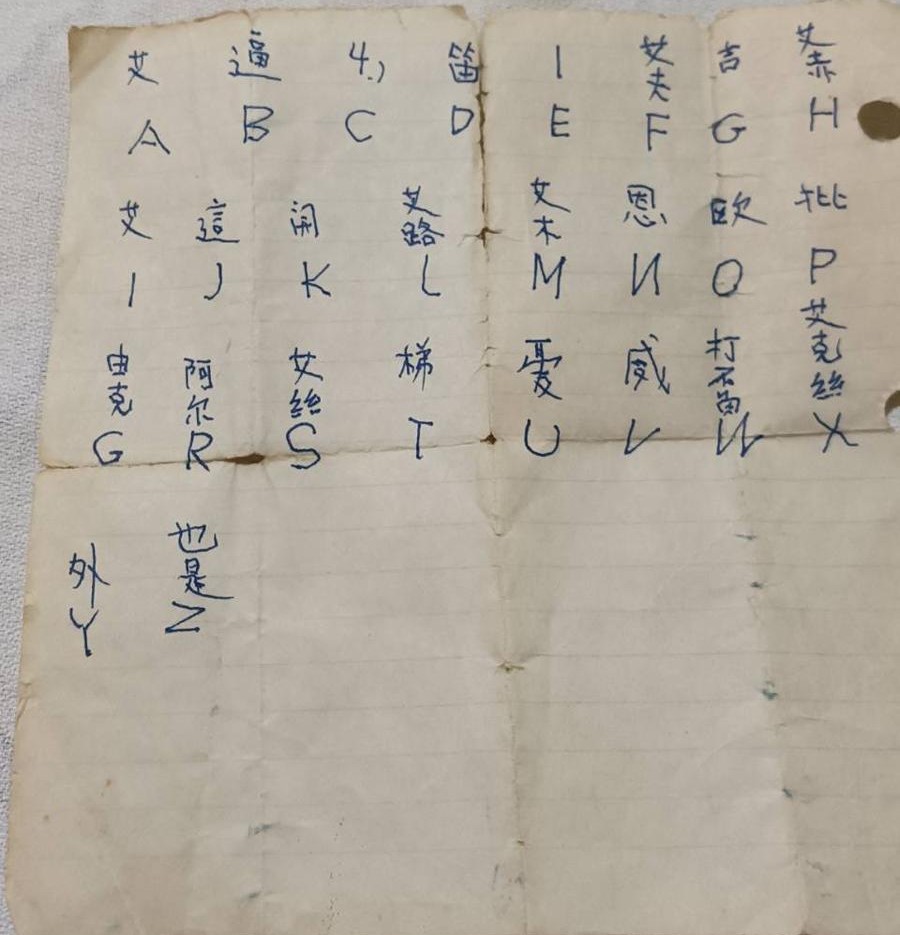 艾 逼 4.) 笛 1 艾夫 吉 艾赤
A B C D E F G H
艾 這 開 艾路 艾木 恩 歐 枇
I J K L M И O P
由克 阿尔 艾絲 梯 憂 威 打不留 艾克絲
G R S T U V W X
外 也是
Y Z